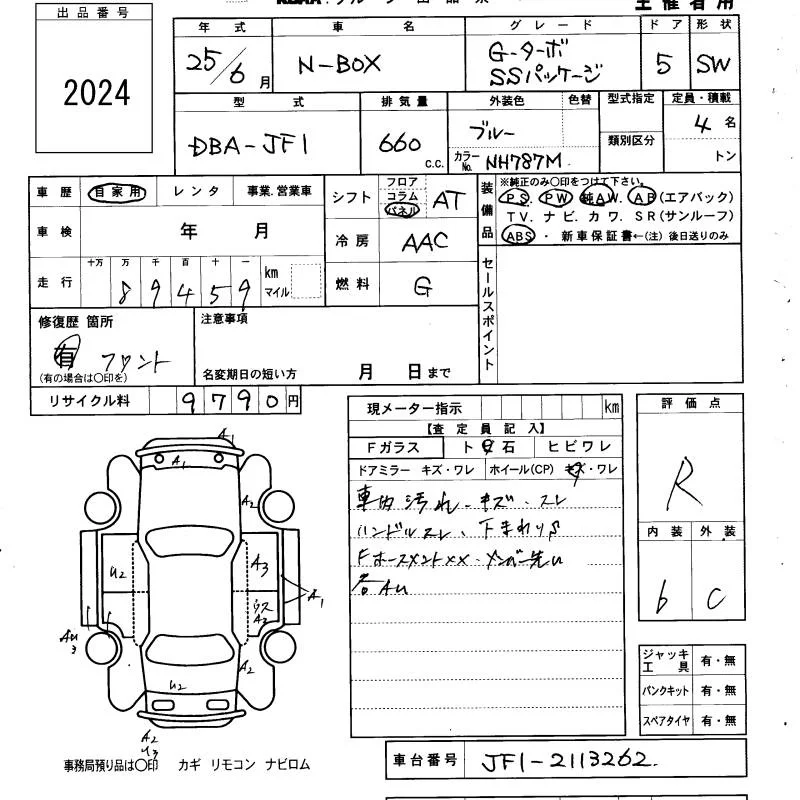 出品番号
2024
主催者用
年式 車名 グレード ドア 形状
25/6月 N-BOX G-ターボ SSパッケージ 5 SW
型式 排気量 外装色 色替 型式指定 定員・積載
DBA-JF1 660 c.c. ブルー 類別区分 4名
カラーNo. NH787M トン
車歴 自家用 レンタ 事業.営業車
車検 年 月
走行 十万 万 千 百 十 一
8 9 4 5 9 km マイル
シフト フロア コラム パネル AT
冷房 AAC
燃料 G
装備品 ※純正のみ〇印をつけて下さい。
PS. PW. 純AW. AB(エアバック)
TV. ナビ. カワ. SR(サンルーフ)
ABS ・ 新車保証書←(注) 後日送りのみ
セールスポイント
修復歴 箇所
有 フロント
(有の場合は〇印を)
注意事項
名変期日の短い方 月 日まで
リサイクル料 9790円
現メーター指示 km
【査定員記入】
Fガラス ト 石 ヒビワレ
ドアミラー キズ・ワレ ホイール(CP) キズ・ワレ
車内汚れ・キズ・スレ
ハンドルスレ、下まわりS
FホースメントXX・メンバー先い
各AU
評価点
R
内装 外装
b C
A1
A1
A2
U2 A3
A1
ウス
A2
AU
3
A2
U2
A2
U3
ジャッキ工具 有・無
パンクキット 有・無
スペアタイヤ 有・無
事務局預り品は〇印 カギ リモコン ナビロム
車台番号 JF1-2113262.